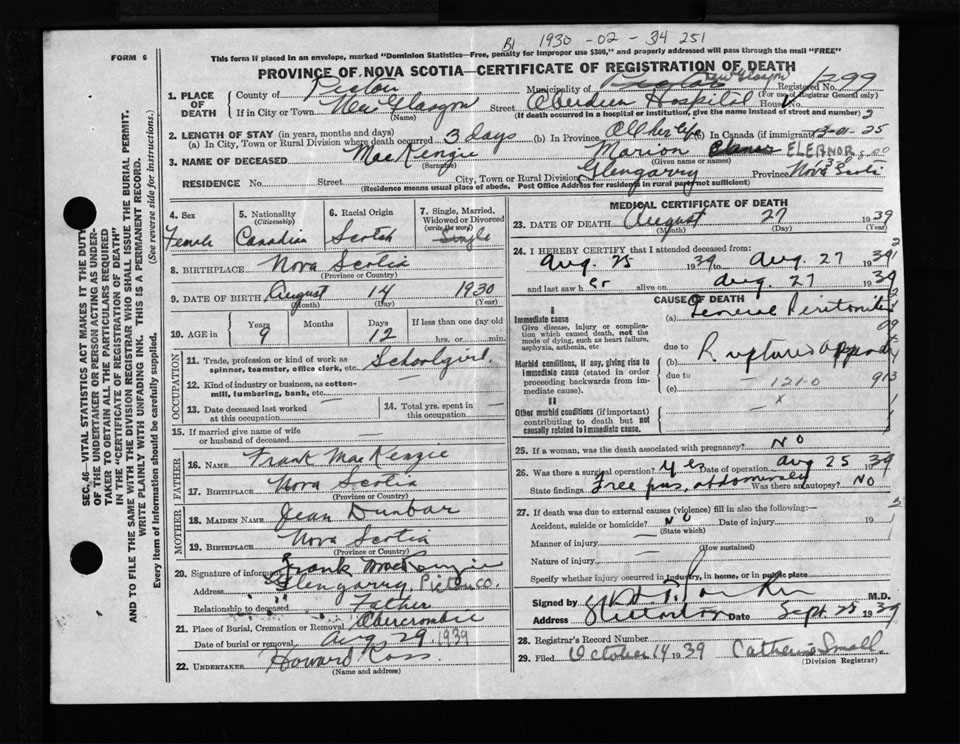 B1 1930 - 02 - 34 251
FORM 6
This form if placed in an envelope, marked "Dominion Statistics—Free, penalty for improper use $300," and properly addressed will pass through the mail "FREE"
PROVINCE OF NOVA SCOTIA—CERTIFICATE OF REGISTRATION OF DEATH
1. PLACE OF DEATH
County of Pictou
Municipality of New Glasgow
Registered No. 1299
(For use of Registrar General only)
If in City or Town New Glasgow
(Name)
Street Aberdeen Hospital House
(If death occurred in a hospital or institution, give the name instead of street and number)
2. LENGTH OF STAY (in years, months and days)
(a) In City, Town or Rural Division where death occurred 3 days (b) In Province All her life (c) In Canada (if immigrant)
3. NAME OF DECEASED MacKenzie Marion ELEANOR
(Surname) (Given name or names)
RESIDENCE No. Street City, Town or Rural Division Glengarry Province Nova Scotia
(Residence means usual place of abode. Post Office Address for residents in rural parts not sufficient)
4. Sex
Female
5. Nationality
(Citizenship)
Canadian
6. Racial Origin
Scotch
7. Single, Married, Widowed or Divorced
(write the word)
Single
8. BIRTHPLACE Nova Scotia
(Province or Country)
9. DATE OF BIRTH August 14 1930
(Month) (Day) (Year)
10. AGE in
Years Months Days If less than one day old
9 12 hrs. or min.
OCCUPATION
11. Trade, profession or kind of work as spinner, teamster, office clerk, etc. Schoolgirl
12. Kind of industry or business, as cotton-mill, lumbering, bank, etc. —
13. Date deceased last worked at this occupation —
14. Total yrs. spent in this occupation —
15. If married give name of wife or husband of deceased —
FATHER
16. NAME Frank MacKenzie
17. BIRTHPLACE Nova Scotia
(Province or Country)
MOTHER
18. MAIDEN NAME Jean Dunbar
19. BIRTHPLACE Nova Scotia
(Province or Country)
20. Signature of informant Frank MacKenzie
Address Glengarry, Pictou Co.
Relationship to deceased Father
21. Place of Burial, Cremation or Removal Abercrombie
Date of burial or removal Aug 29 1939
22. UNDERTAKER Howard Ross
(Name and address)
MEDICAL CERTIFICATE OF DEATH
23. DATE OF DEATH August 27 1939
(Month) (Day) (Year)
24. I HEREBY CERTIFY that I attended deceased from:
Aug. 25 1939 to Aug. 27 1939
and last saw her alive on Aug. 27 1939
CAUSE OF DEATH
I
Immediate cause
Give disease, injury or complication which caused death, not the mode of dying, such as heart failure, asphyxia, asthenia, etc.
(a) General Peritonitis
due to
Morbid conditions, if any, giving rise to immediate cause (stated in order proceeding backwards from immediate cause).
(b) Ruptured appendix
due to
(c) — 121.0
913
II
Other morbid conditions (if important) contributing to death but not causally related to immediate cause.
— x
25. If a woman, was the death associated with pregnancy? No
26. Was there a surgical operation? yes Date of operation Aug 25 1939
State findings Free pus, abdominally Was there an autopsy? No
27. If death was due to external causes (violence) fill in also the following:—
Accident, suicide or homicide? No Date of injury 19
(State which)
Manner of injury —
(How sustained)
Nature of injury —
Specify whether injury occurred in industry, in home, or in public place
Signed by M.D.
Address Stellarton Date Sept. 25 1939
28. Registrar's Record Number
29. Filed October 14 1939 Catherine Small
(Division Registrar)
SEC. 46—VITAL STATISTICS ACT MAKES IT THE DUTY
OF THE UNDERTAKER OR PERSON ACTING AS UNDER-
TAKER TO OBTAIN ALL THE PARTICULARS REQUIRED
IN THE "CERTIFICATE OF REGISTRATION OF DEATH"
AND TO FILE THE SAME WITH THE DIVISION REGISTRAR WHO SHALL ISSUE THE BURIAL PERMIT.
WRITE PLAINLY WITH UNFADING INK. THIS IS A PERMANENT RECORD.
Every item of information should be carefully supplied. (See reverse side for instructions.)